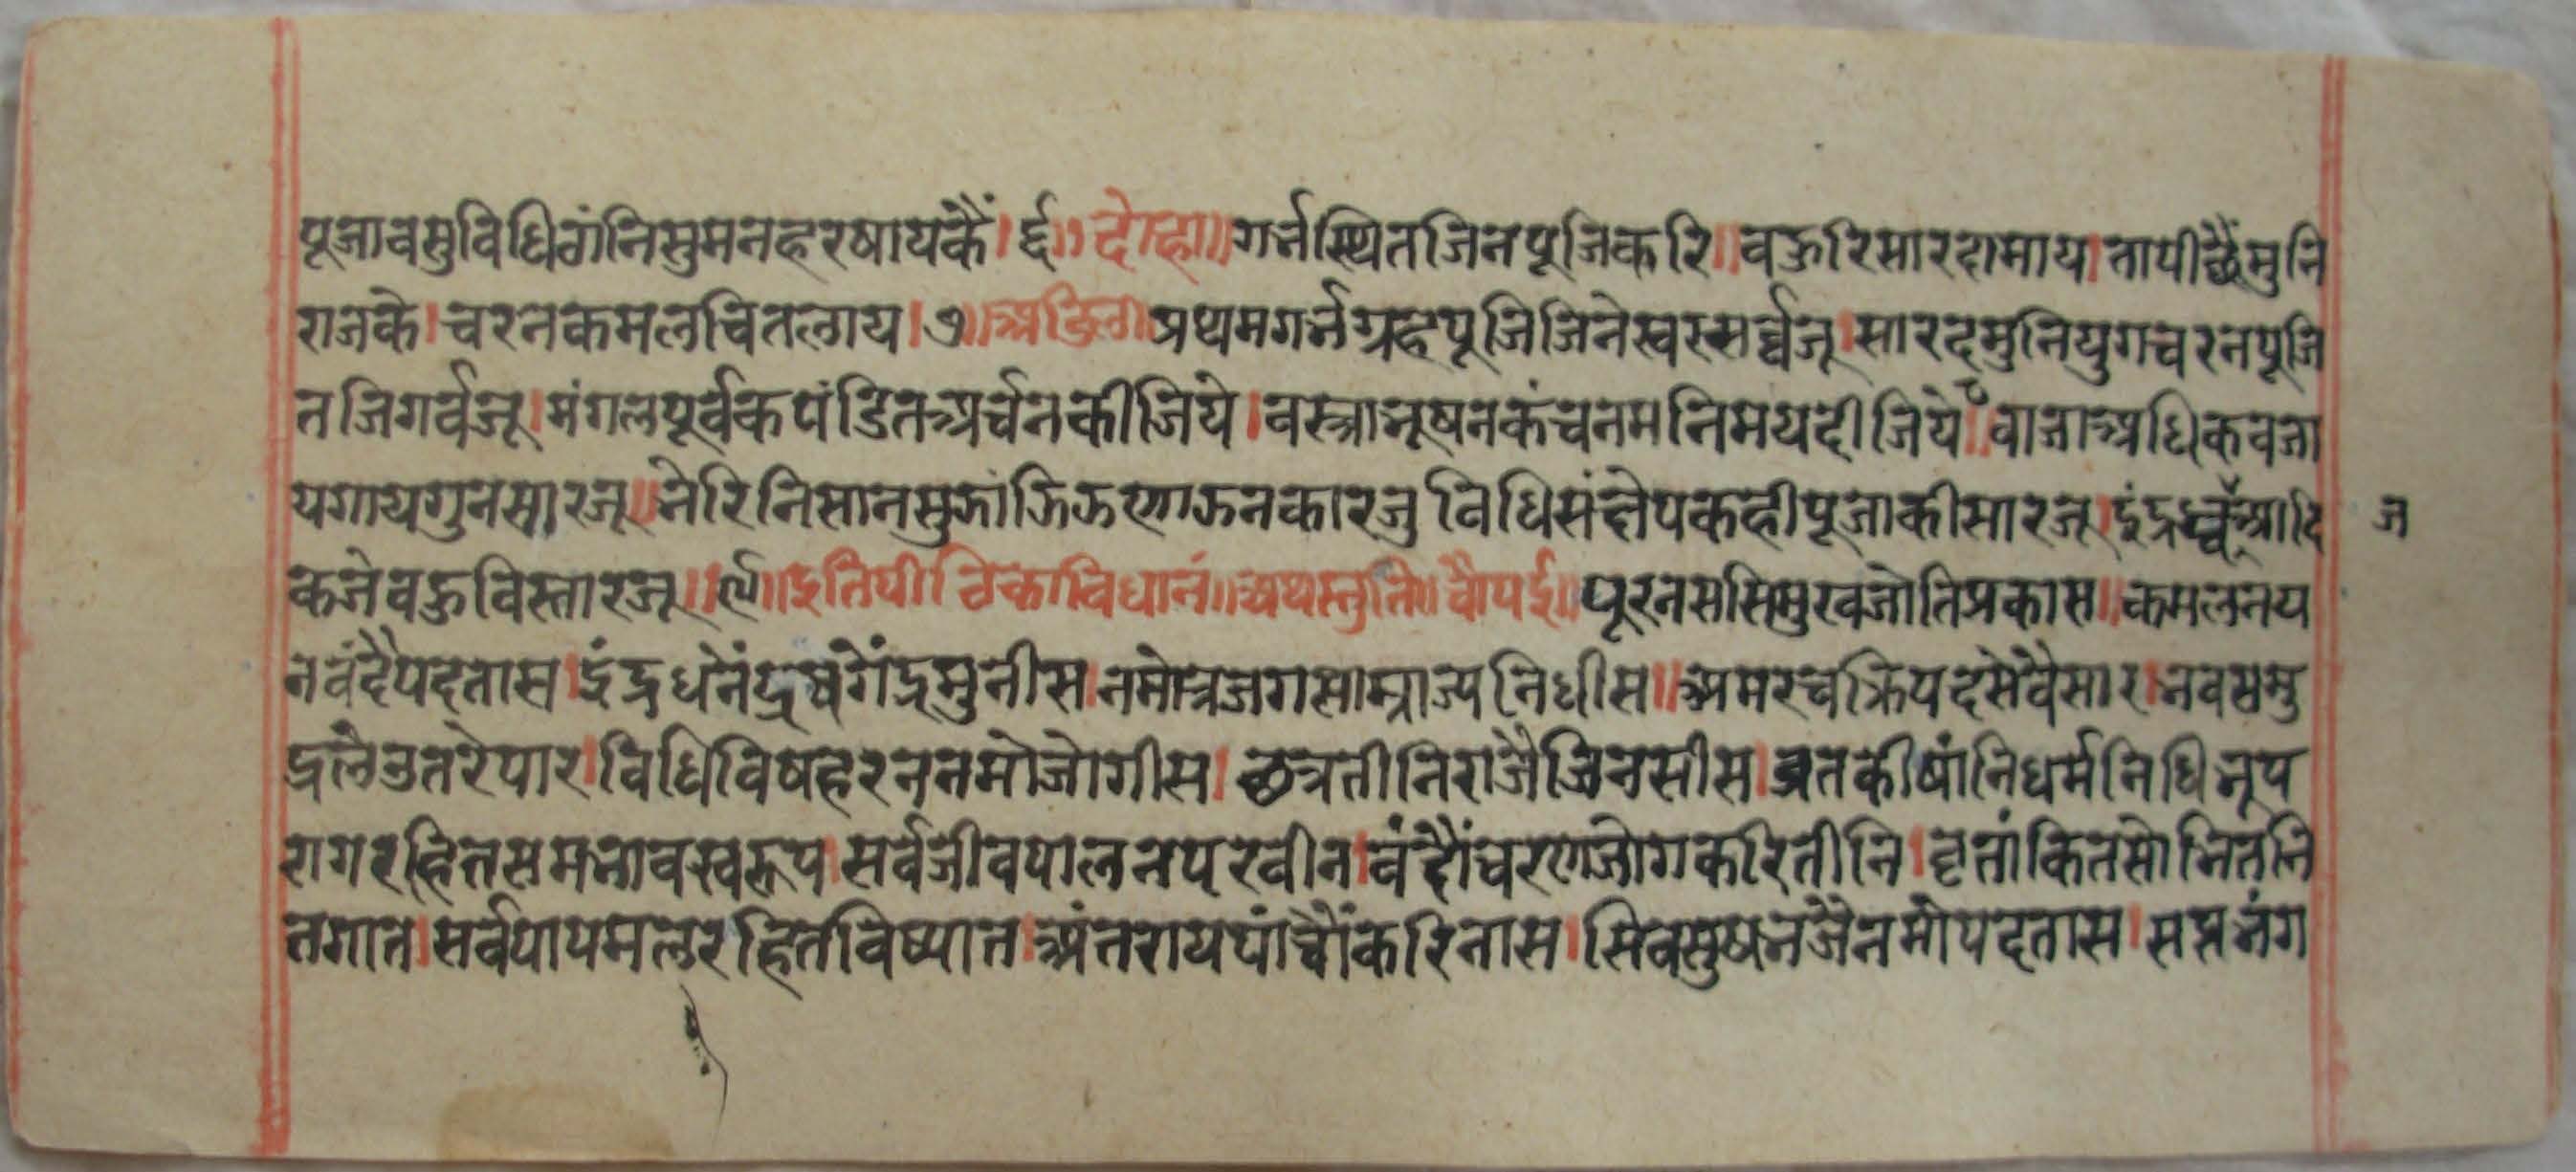 पूजावसुविधिठांनिसुमनहरषायकैं।६।।दोहा।।गर्भस्थितजिनपूजिकरि।।वऊरिसारदामाय।तापीछैंमुनि
राजके।चरनकमलचितलाय।७।।अडिल।प्रथमगर्भग्रहपूजिजिनेस्वरसर्वजू।सारदमुनियुगचरनपूजि
तजिगर्वजू।मंगलपूर्वकपंडितअर्चनकीजिये।वस्त्राभूषनकंचनमनिमयदीजिये।८।वाजाअधिकवजा
यगायगुनसारजू।।भेरिनिसानसुझांझिझणऊनकारजु विधिसंक्षेपकहीपूजाकीसारजू।इंद्रध्वजआदि
ज
कजेवऊविस्तारजू।।९।।इतिपीठिकाविधानं।।अथस्तुति।।चौपई।।पूरनससिमुखजोतिप्रकास।।कमलनय
नवंदैपदतास।इंद्रधनेंद्रषगेंद्रमुनीस।नमोत्रजगसाम्राज्यनिधीस।।अमरचक्रिपदसेवैसार।भवसमु
द्रलेउतरेपार।विधिविषहरननमोजोगीस।छत्रतीनिराजैजिनसीस।व्रतकीषांनिधर्मनिधिभूप
रागरहितसमभावस्वरूप।सर्वजीवपालनपरवीन।वंदौंचरणजोगकरितीनि।वृतांकितसोभितनि
तगात।सर्वपापमलरहितविष्यात।अंतरायपांचौंकरिनास।सिवसुषभजैनमोंपदतास।सप्तभंग